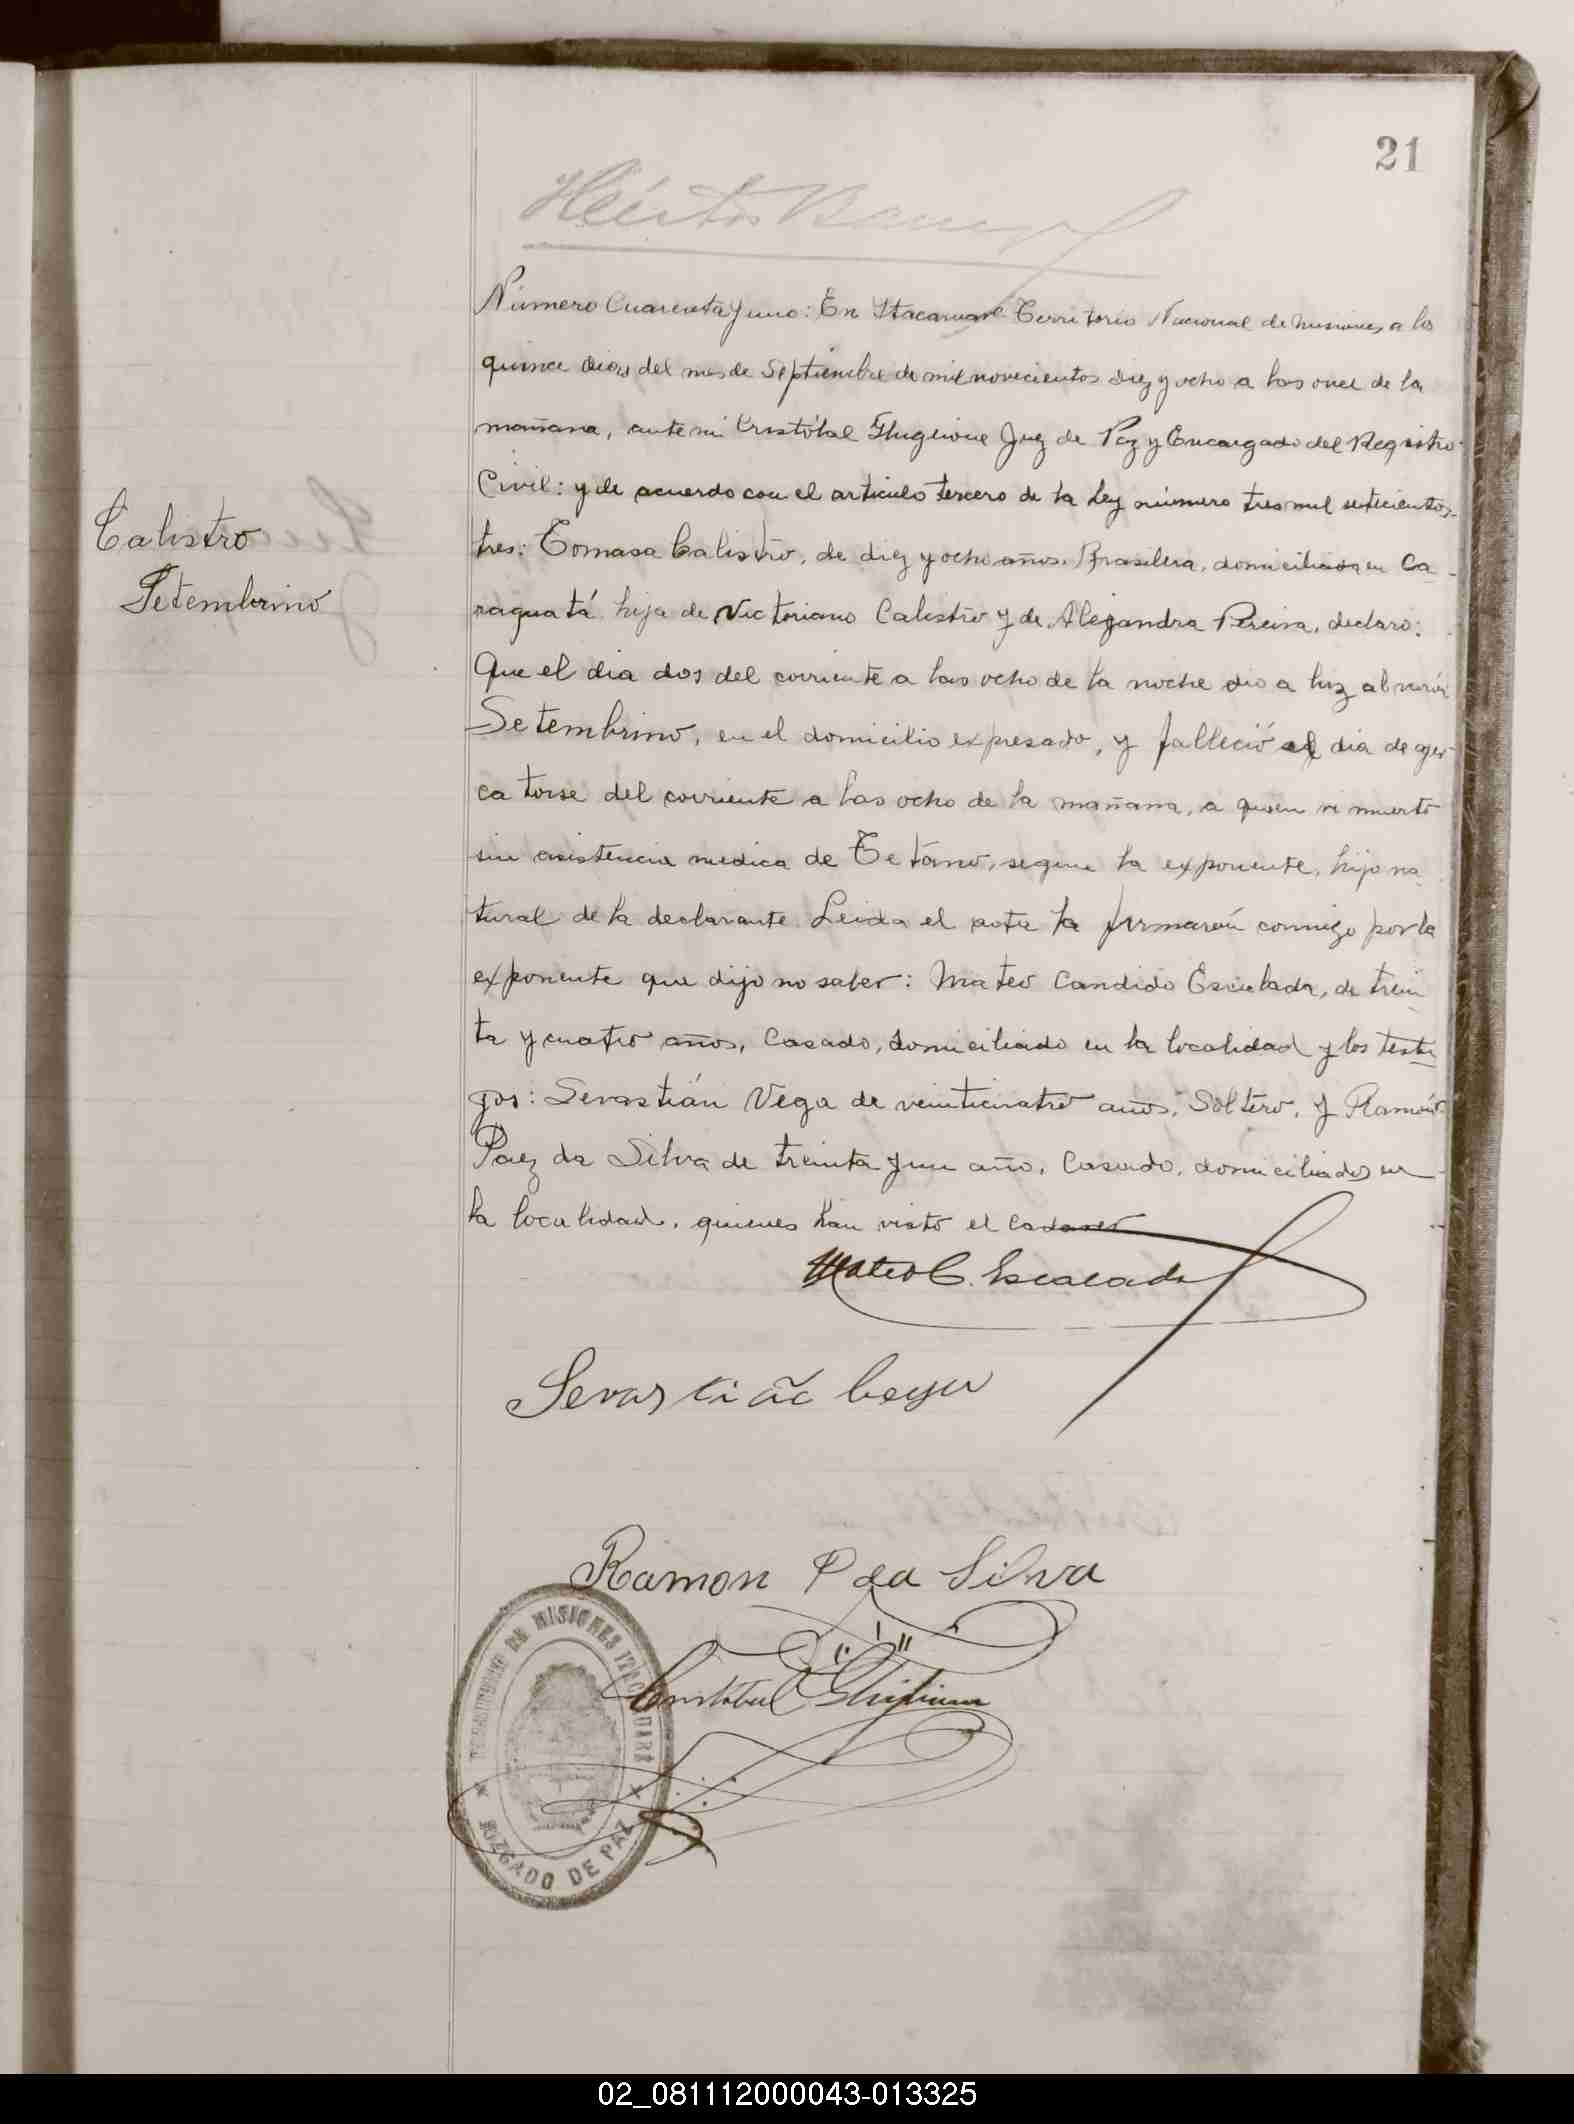 21
Número Cuarenta y uno: En Itacaruaré Territorio Nacional de Misiones, a los
quince dias del mes de Septiembre de mil novecientos diez y ocho a las once de la
mañana, ante mi Cristóbal Ghiglione Juez de Paz y Encargado del Registro
Civil: y de acuerdo con el articulo tercero de la Ley número tres mil setecientos
tres: Tomasa Calistro, de diez y ocho años, Brasilera, domiciliada en Ca-
raguatá hija de Victoriano Calistro y de Alejandra Pereira, declaro:
Que el dia dos del corriente a las ocho de la noche dio a luz al varón
Setembrino, en el domicilio expresado, y falleció el dia de ayer
catorse del corriente a las ocho de la mañana, a quien vi muerto
sin asistencia medica de Tetano, segun la exponente, hijo na
tural de la declarante. Leida el acta la firmarón conmigo por la
exponente que dijo no saber: Mateo Candido Escalada, de trein
ta y cuatro años, Casado, domiciliado en la localidad y los testi
gos: Sevastián Vega de veinticuatro años, Soltero, y Ramón
Paez da Silva de treinta y un año, Casado, domiciliados en
la localidad, quienes han visto el cadaver
Calistro
Setembrino
Mateo C. Escalada
Sevastian
Ramon P da Silva
Cristobal Ghiglione
DE MISIONES
JUZGADO DE PAZ
02_081112000043-013325